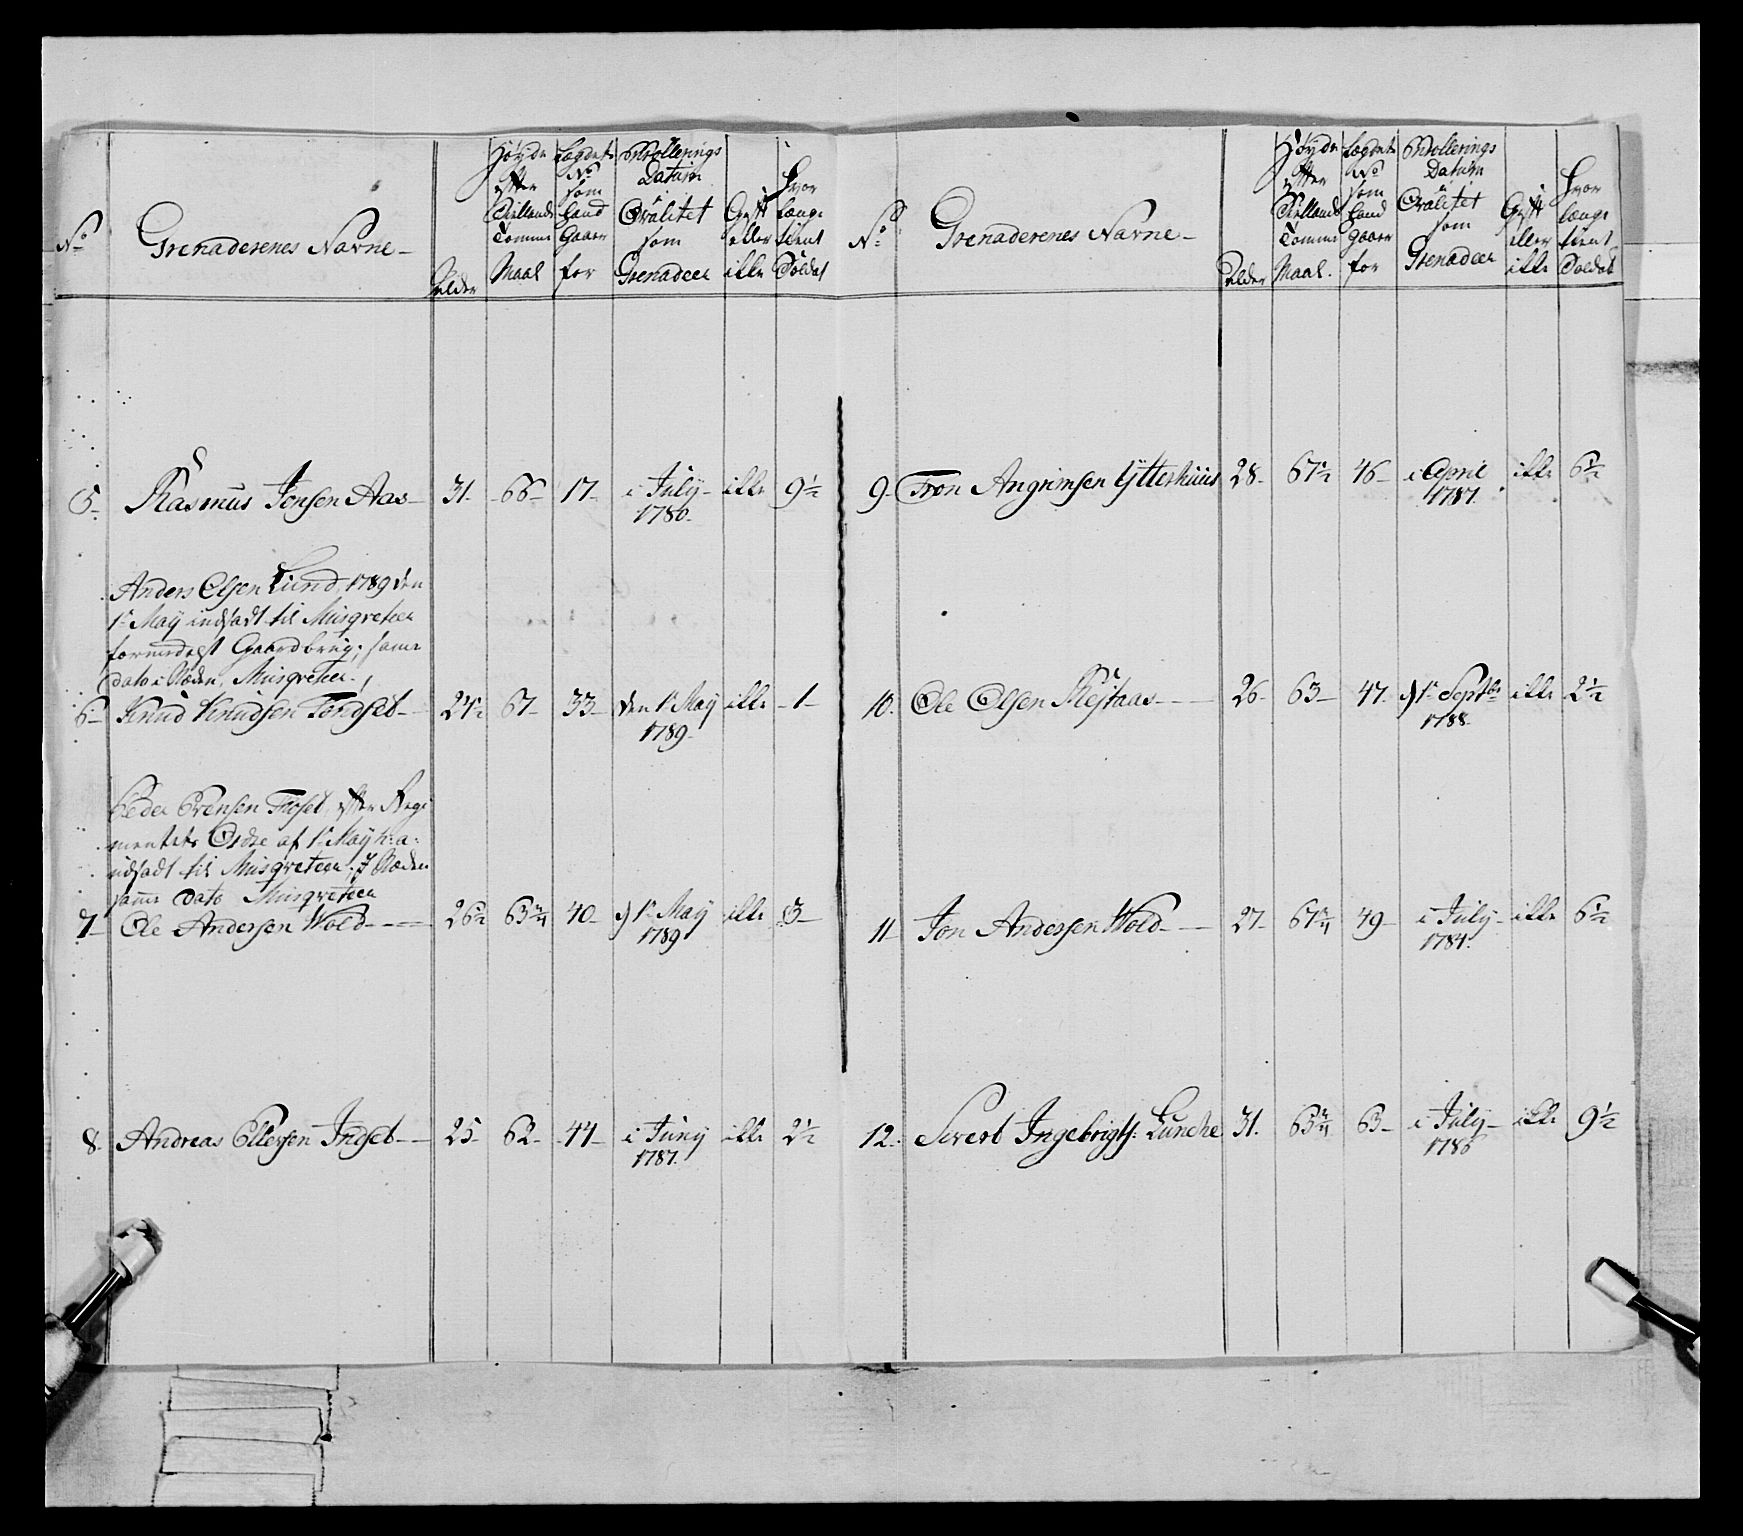 No
Grenaderenes Navne
Alder
Høyde efter Siællands Tomme Maal
Lægdets No som Land Gaaer for
Enrollerings Datum i Qvalitet som Grenadeer
Gift eller ikke
Hvor længe tient Soldat
5 Rasmus Jonsen Aas 31. 66 17 i July 1780. ikke 9½
Anders Olsen Lund, 1789 den
1te May indsadt til Musqveteer
formedelst Gaardbrug; samme
Dato i Stæden, Musqveteer.
6 Knud Knudsen Tondset 24½ 67 33 den 1te May 1789 ikke 1
Peder Evensen Floset, efter Regi
mentets Ordre af 1te May h: a:
udsadt til Musqveteer; I Stæden
samme Dato Musqveteer
7 Ole Andersen Wold 26½ 63¾ 40 d 1te May 1789 ikke 3
8. Andreas Ellersen Indset 25 62 44 i Juny 1787. ikke 2½
No
Grenaderenes Navne
Alder
Høyde efter Siællands Tomme Maal.
Lægdets No som Land gaaer for
Enrollerings Datum i Qvalitet som Grenadeer
Gift eller ikke
Hvor længe tient Soldat
9 Tron Angrimsen Ytterhuus 28. 67½ 46 i April 1787. ikke 6½
10. Ole Olsen 26 63 47. d 1te Septbr 1788. ikke 2½
11 Jon Andersen Wold 27 67¾ 49 i July 1784. ikke 6½
12. Sivert Ingebrigts: Lunche 31. 63¾ 63 i July 1780 ikke 9½